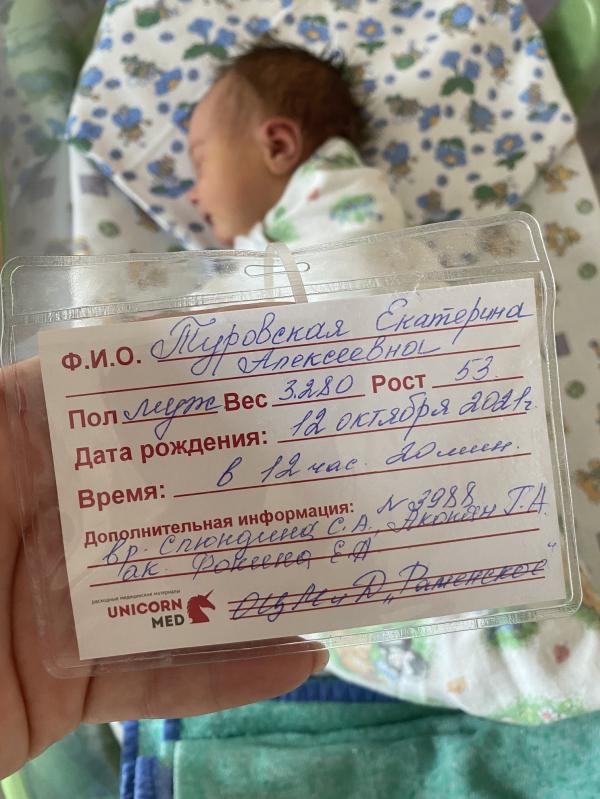 Ф.И.О. Туровская Екатерина
Алексеевна
Пол муж Вес 3280 Рост 53
Дата рождения: 12 октября 2021г.
Время: в 12 час. 20 мин.
Дополнительная информация: N 3988
вр. Спюндина С.А., Акопян Г.А.
ак. Фокина Е.А
расходные медицинские материалы
UNICORN
MED
ОЦМиД „Раменское"